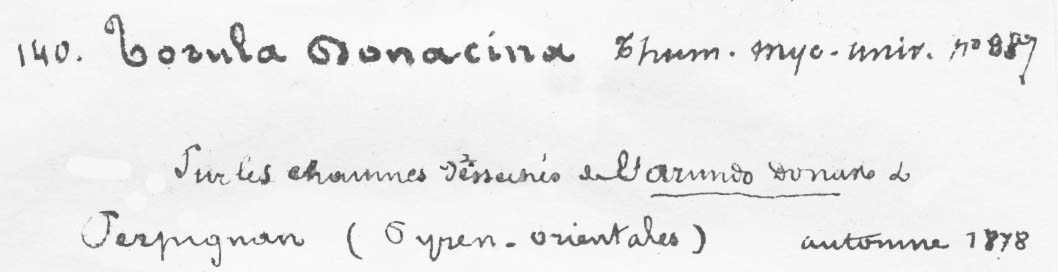 140. Torula Donacina Thum. myc. univ. no 887
Sur les chaumes désséchés de l'arundo Donax à
Perpignan (Pyren-orientales) automne 1878